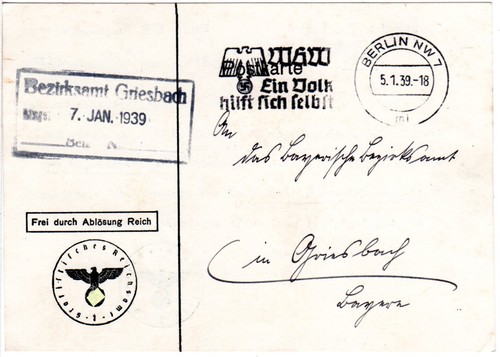 Bezirksamt Griesbach
7. JAN. 1939
Frei durch Ablösung Reich
Statistisches Reichsamt
- 1 -
WHW
Postkarte
Ein Volk
hilft sich selbst
BERLIN NW 7
5.1.39.-18
An
das Bayerische Bezirksamt
in Griesbach
Bayern